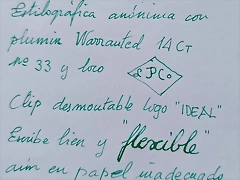 Estilográfica anónima con
plumín Warranted 14 CT
Nº 33 y logo
&PCo
Clip desmontable logo "IDEAL"
Escribe bien y "flexible"
aún en papel inadecuado